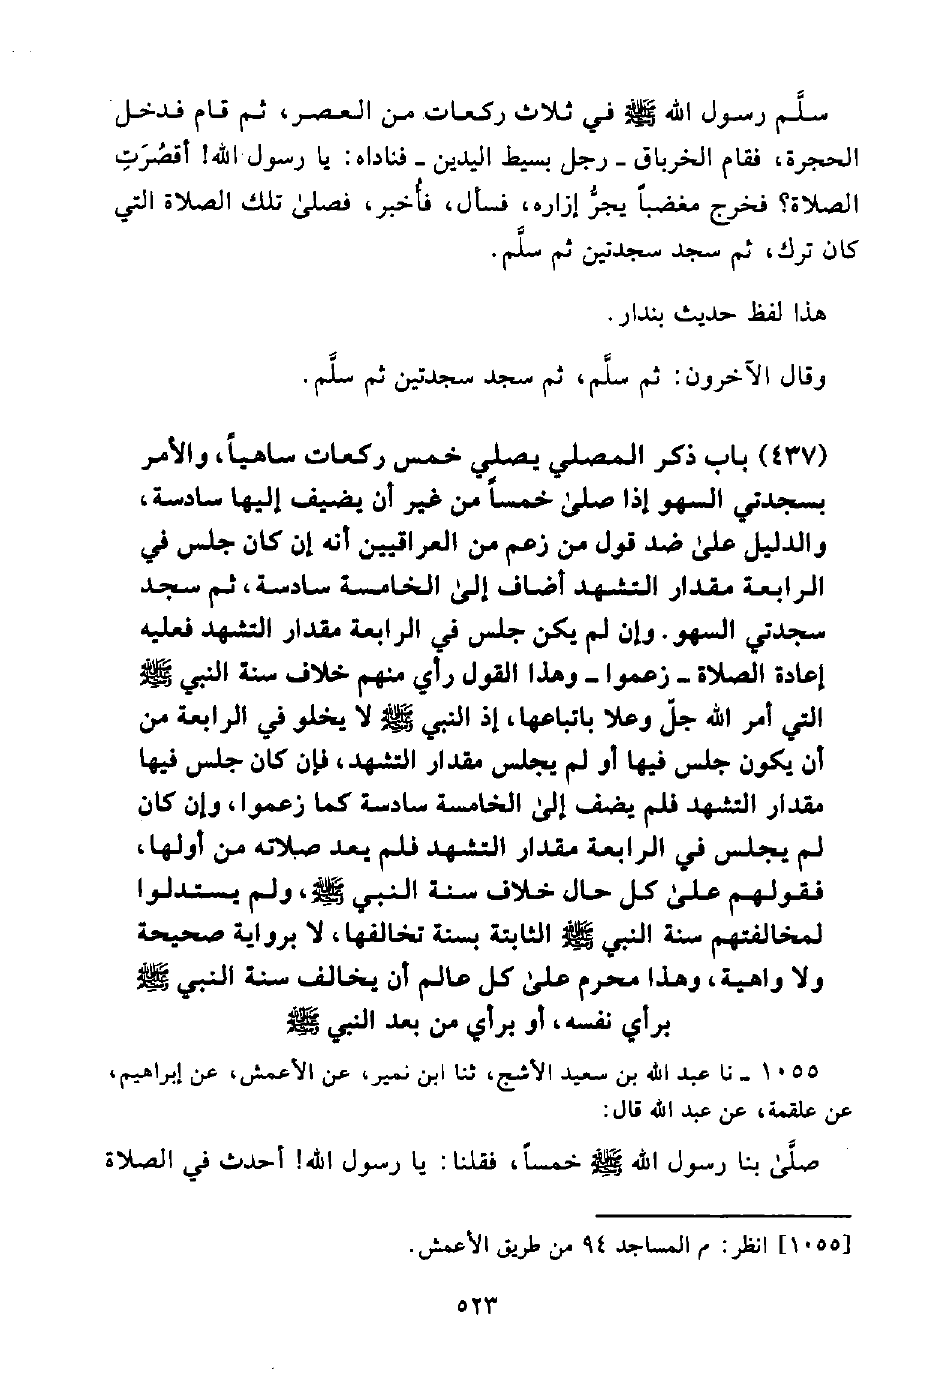 سلَّم رسول الله ﷺ في ثلاث ركعات من العصر، ثم قام فدخل
الحجرة، فقام الخرباق ـ رجل بسيط اليدين ـ فناداه: يا رسول الله! أقصُرَتِ
الصلاة؟ فخرج مغضباً يجرُّ إزاره، فسأل، فأُخبر، فصلىٰ تلك الصلاة التي
كان ترك، ثم سجد سجدتين ثم سلَّم.
هذا لفظ حديث بندار.
وقال الآخرون: ثم سلَّم، ثم سجد سجدتين ثم سلَّم.
(٤٣٧) باب ذكر المصلي يصلي خمس ركعات ساهياً، والأمر
بسجدتي السهو إذا صلىٰ خمساً من غير أن يضيف إليها سادسة،
والدليل علىٰ ضد قول من زعم من العراقيين أنه إن كان جلس في
الرابعة مقدار التشهد أضاف إلىٰ الخامسة سادسة، ثم سجد
سجدتي السهو. وإن لم يكن جلس في الرابعة مقدار التشهد فعليه
إعادة الصلاة ـ زعموا ـ وهذا القول رأي منهم خلاف سنة النبي ﷺ
التي أمر الله جلّ وعلا باتباعها، إذ النبي ﷺ لا يخلو في الرابعة من
أن يكون جلس فيها أو لم يجلس مقدار التشهد، فإن كان جلس فيها
مقدار التشهد فلم يضف إلىٰ الخامسة سادسة كما زعموا، وإن كان
لم يجلس في الرابعة مقدار التشهد فلم يعد صلاته من أولها،
فقولهم علىٰ كل حال خلاف سنة النبي ﷺ، ولم يستدلوا
لمخالفتهم سنة النبي ﷺ الثابتة بسنة تخالفها، لا برواية صحيحة
ولا واهية، وهذا محرم علىٰ كل عالم أن يخالف سنة النبي ﷺ
برأي نفسه، أو برأي من بعد النبي ﷺ
١٠٥٥ ـ نا عبد الله بن سعيد الأشج، ثنا ابن نمير، عن الأعمش، عن إبراهيم،
عن علقمة، عن عبد الله قال:
صلَّىٰ بنا رسول الله ﷺ خمساً، فقلنا: يا رسول الله! أحدث في الصلاة
[١٠٥٥] انظر: م المساجد ٩٤ من طريق الأعمش.
٥٢٣